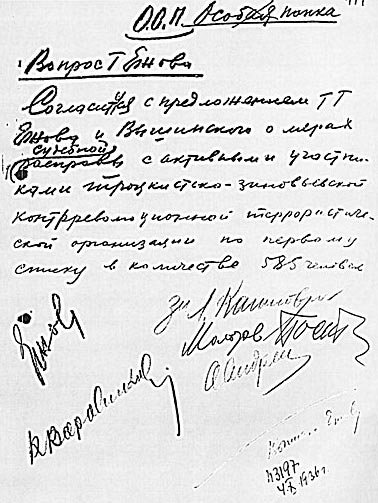 О.О.П. Особая папка
Вопрос Т Ежова
Согласиться с предложением ТТ
Ежова и Вышинского о мерах
судебной
расправы с активными участни-
ками троцкистско-зиновьевской
контрреволюционной террористиче-
ской организации по первому
списку в количестве 585 человек
За Л. Каганович
Молотов Посты
А Андреев
Ежов
К Ворошилов
Ежову
А3197
1936г.